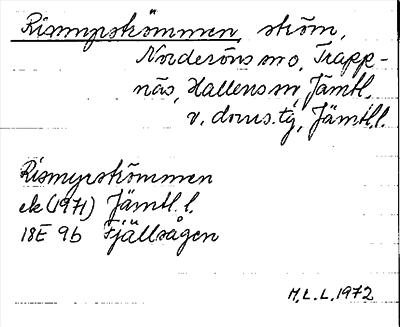 Rismyrströmmen, ström,
Norderöns sn o, Trapp-
näs, Hallens sn, Jämtl.
v. doms.tg, Jämtl.l.
Rismyrströmmen
ek (1971) Jämtl.l.
18E 9b Fjällsågen
H.L.L. 1972